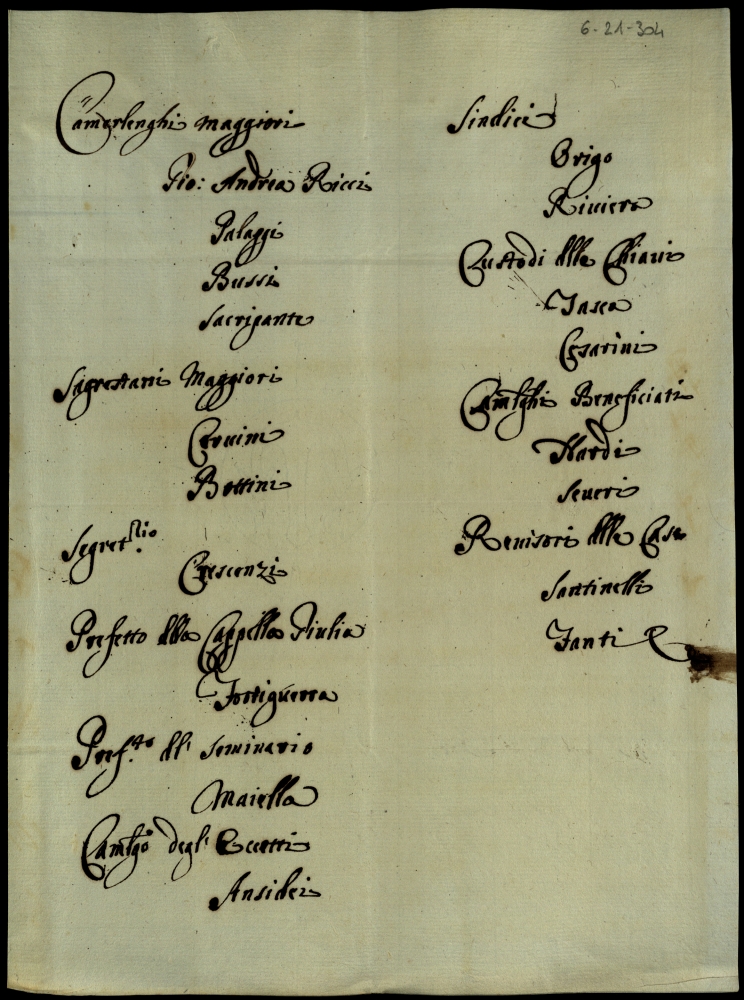 6-21-304
Camerlenghi maggiori
Gio: Andrea Ricci
Palaggi
Bussi
Sacripante
Sagrestani Maggiori
Cervini
Bottini
Segret.rio
Crescenzi
Prefetto della Cappella Giulia
Fortiguerra
Pref.to del Seminario
Maiella
Camlgo degl'
Ansidei
Sindici
Origo
Riviera
Custodi delle Chiavi
Tasca
Cesarini
Camlghi Beneficiati
Nardi
Severi
Revisori delle Case
Santinelli
Fanti